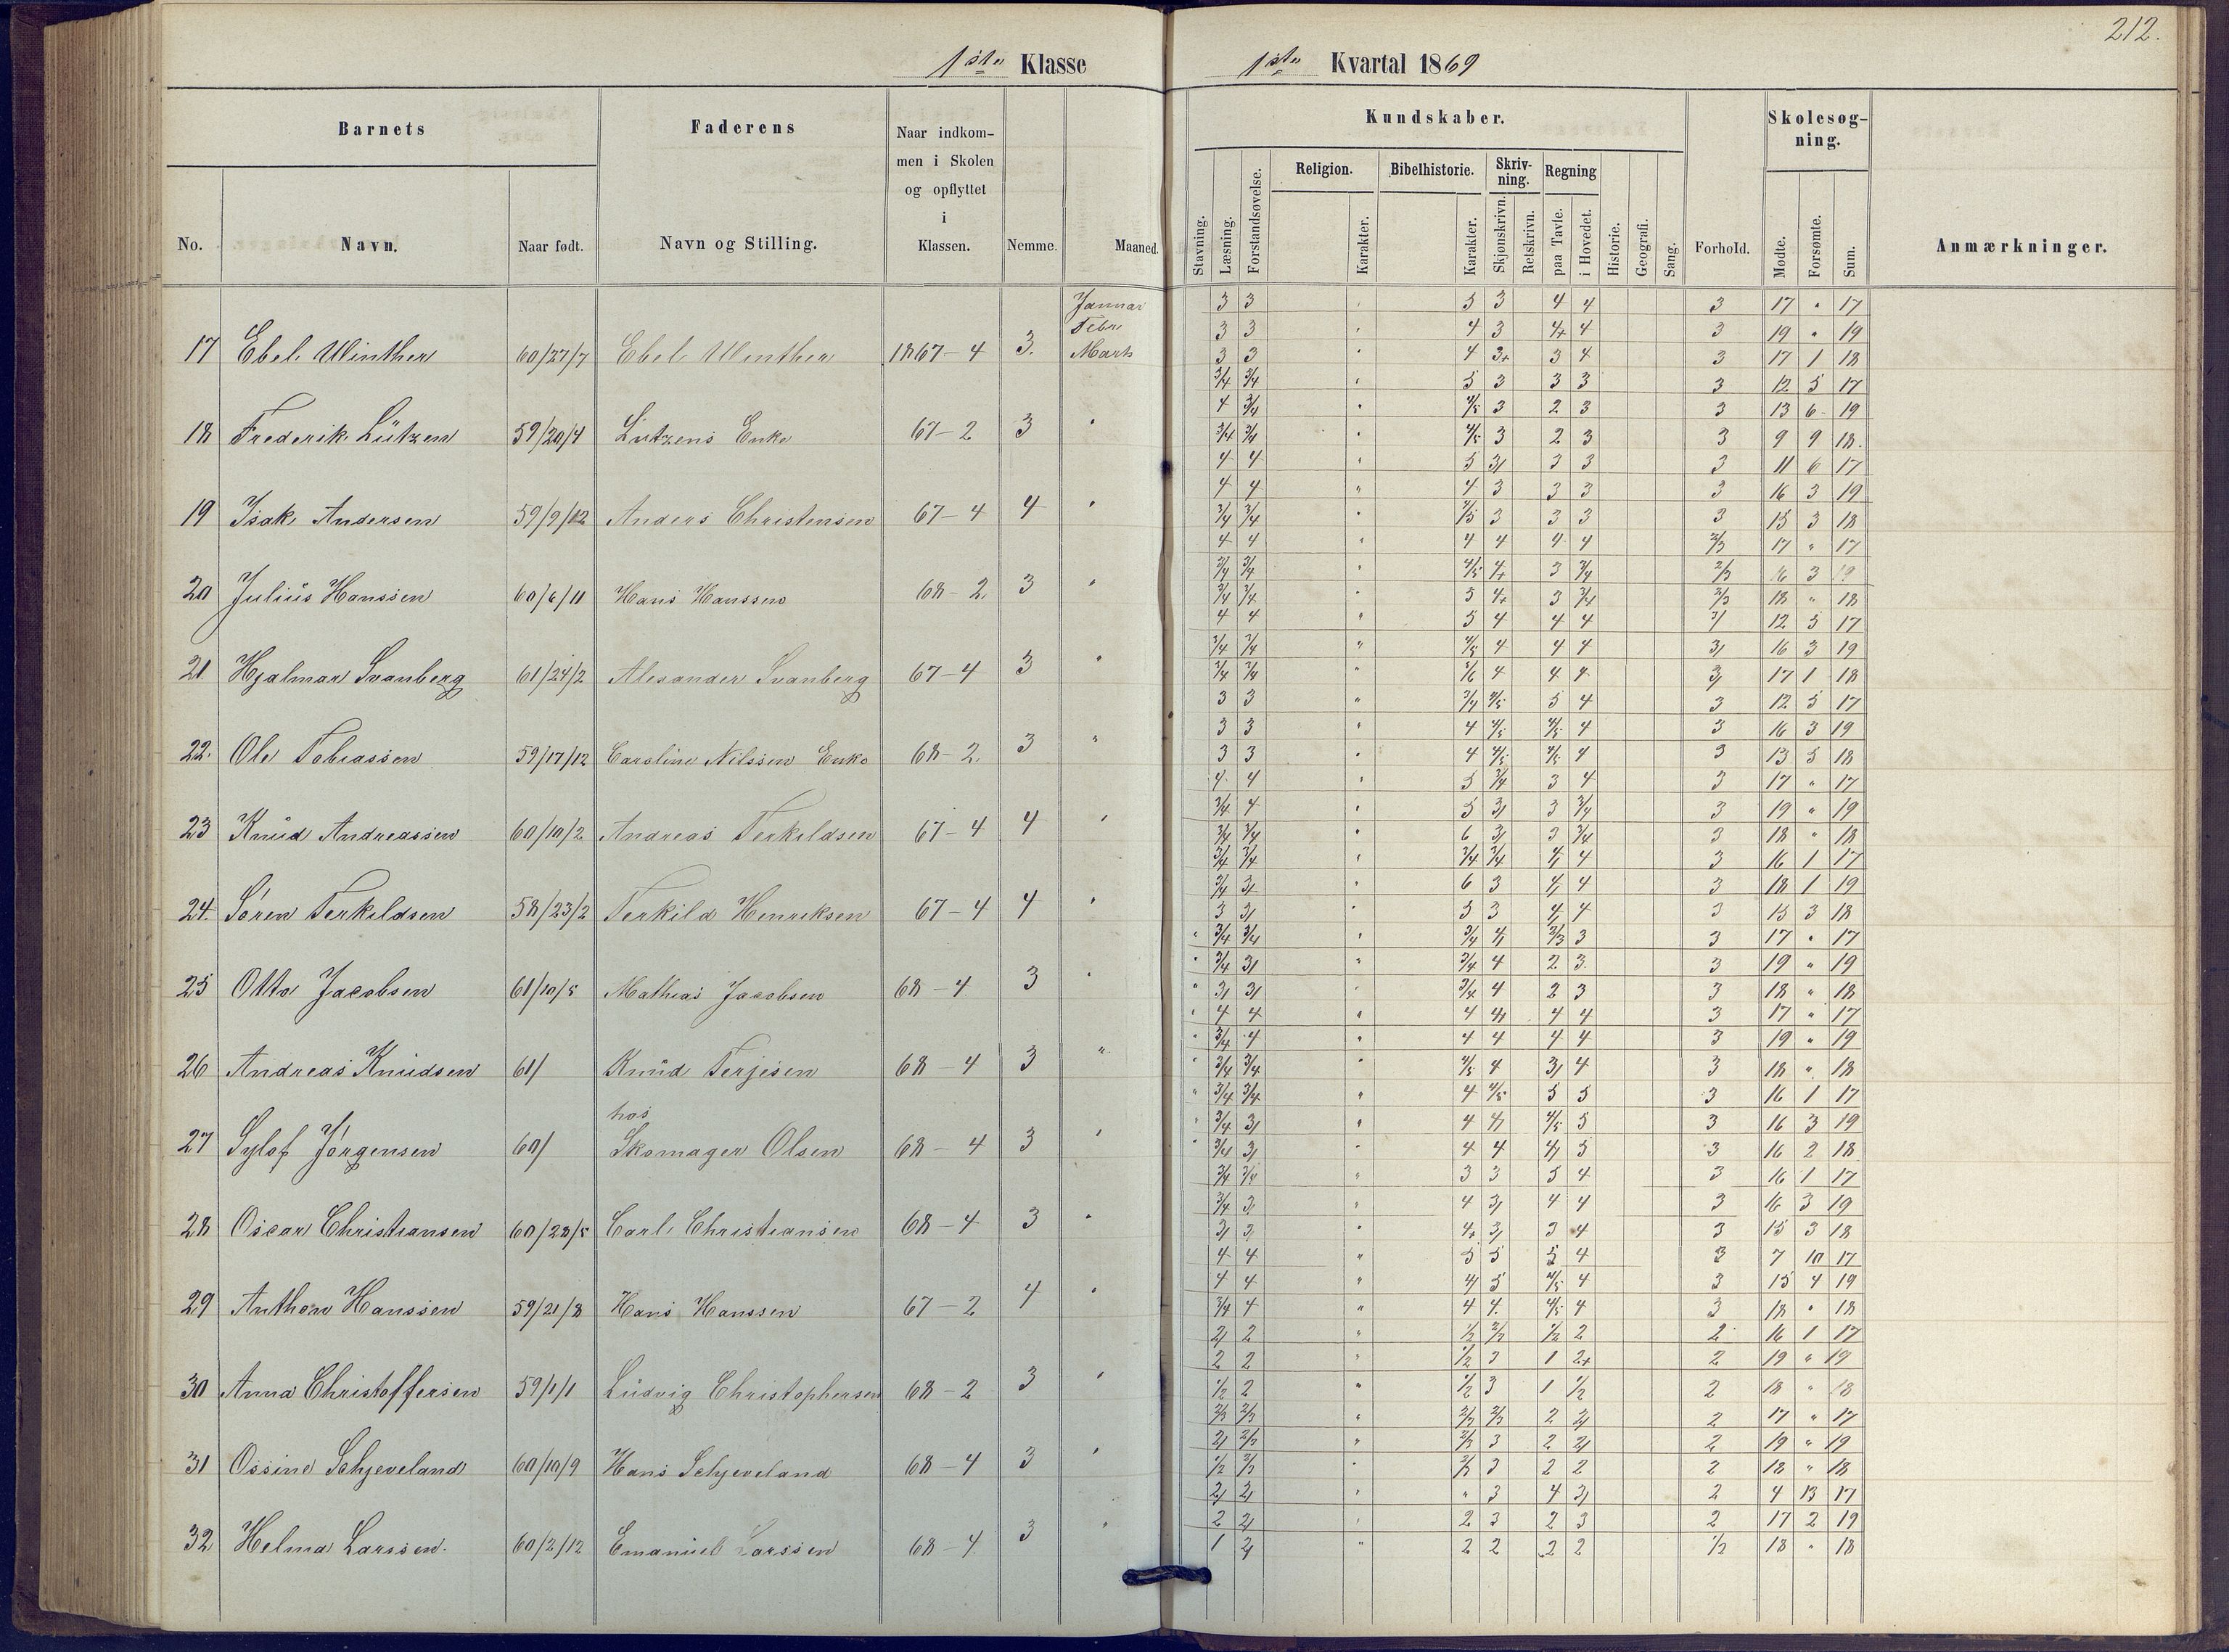 212.
1ste Klasse
1ste Kvartal 1869
Barnets
Faderens
Naar indkom-
men i Skolen
og opflyttet
i
Klassen.
Kundskaber.
Skolesøg-
ning.
No.
Navn.
Naar født.
Navn og Stilling.
Nemme.
Maaned.
Stavning.
Læsning.
Forstandsøvelse.
Religion.
Karakter.
Bibelhistorie.
Karakter.
Skriv-
ning.
Skjønskrivn.
Retskrivn.
Regning
paa Tavle.
i Hovedet.
Historie.
Geografi.
Sang.
Forhold.
Mødte.
Forsømte.
Sum.
Anmærkninger.
Januar 3 3 5 3 4 4 3 17 " 17
Febr 3 3 4 3 4+ 4 3 19 " 19
17 Ebel Winther 60/27/7 Ebel Winther 1867-4 3. Marts 3 3 4 3+ 3 4 3 17 1 18
3/4 3/4 5 3 3 3 3 12 5 17
4 3/4 4/5 3 2 3 3 13 6 19
18 Frederik Lützen 59/20/4 Lutzens Enke 67-2 3 " 3/4 3/4 4/5 3 2 3 3 9 9 18.
4 4 5 3/ 3 3 3 11 6 17
4 4 " 4 3 3 3 3 16 3 19
19 Isak Andersen 59/9/12 Anders Christensen 67-4 4 " 3/4 3/4 " 4/5 3 3 3 3 15 3 18
4 4 " 4 4 4 4 2/3 17 " 17
3/4 3/4 " 4/5 4+ 3 3/4 2/3 16 3 19
20 Julius Hanssen 60/6/11 Hans Hanssen 68-2. 3 " 3/4 3/4 " 5 4+ 3 3/4 2/3 18 " 18
4 4 " 5 4 4 4 3/ 12 5 17
3/4 3/4 " 4/5 4 4 4 3/ 16 3 19
21 Hjalmar Svanberg 61/24/2 Alexander Svanberg 67-4 3 " 3/4 3/4 " 5/6 4 4 4 3/ 17 1 18
3 3 " 3/4 4/5 5 4 3 12 5 17
3 3 " 4 4/5 4/5 4 3 16 3 19
22. Ole Tobiassen 59/17/12 Caroline Nilssen Enke 68-2. 3 " 3 3 " 4 4/5 4/5 4 3 13 5 18
4 4 " 5 3/4 3 4 3 17 " 17
3/4 4 " 5 3/ 3 3/4 3 19 " 19
23 Knud Andreassen 60/10/2 Andreas Terkildsen 67-4 4 " 3/4 3/4 " 6 3/ 3 3/4 3 18 " 18
3/4 3/4 " 3/4 3/4 4/ 4 3 16 1 17
3/4 3/ " 6 3 4/ 4 3 18 1 19
24. Sören Terkildsen 58/23/2 Terkild Henriksen 67-4 4 " 3 3/ " 5 3 4/ 4 3 15 3 18
" 3/4 3/4 " 3/4 4/ 2/3 3 3 17 " 17
" 3/4 3/ " 3/4 4 2 3 3 19 " 19
25 Otto Jacobsen 61/10/5 Mathias Jacobsen 68-4 3 " " 3/ 3/ " 3/4 4 2 3 3 18 " 18
" 4 4 " 4 4/ 4 4 3 17 " 17
" 3/4 4 " 4 4 4 4 3 19 " 19
26 Andreas Knudsen 61/ Knud Terjesen 68-4 3 " " 3/4 3/4 " 4/5 4 3/ 4 3 18 " 18
" 3/4 3/4 " 4 4/5 5 5 3 16 1 17
hos
" 3/4 3/ " 4 4/ 4/5 5 3 16 3 19
27 Sylof Jörgensen 60/ Skomager Olsen 68-4 3 " " 3/4 3/ " 4 4 4/ 5 3 16 2 18
3/4 3/4 " 3 3 5 4 3 16 1 17
3/4 3 " 4 3/ 4 4 3 16 3 19
28 Oscar Christiansen 60/28/5 Carl Christiansen 68-4 3 " 3/ 3 " 4+ 3/ 3 4 3 15 3 18
4 4 " 5 5 5 4 3 7 10 17
4 4 " 4/ 5 4/5 4 3 15 4 19
29 Anthon Hanssen 59/21/8 Hans Hanssen 67-2 4 " 3/4 4 " 4 4. 4/5 4 3 18 " 18
2/ 2 " 1/2 2/3 1/2 2 2 16 1 17
2 2 " 1/2 3 1 2+ 2 19 " 19
30 Anna Christoffersen 59/1/1 Ludvig Christophersen 68-2 3 " 1/2 2 " 1/2 3 1 1/2 2 18 " 18
2/3 2/3 " 2/3 2/3 2 2/ 2 17 " 17
2/ 2/3 " 2/3 3 2 2/ 2 19 " 19
31 Ossine Schjeveland 60/10/9 Hans Schjeveland 68-4 3 " 1/2 2/3 " 2/3 3 2 2 2 18 " 18
2/ 2/ " " 3 4 3/ 2 4 13 17
2 2/ " 2 3 2 3 2 17 2 19
32 Helma Larssen. 60/2/12 Emanuel Larssen 68-4 3 " 1 2/ " 2 2 2 2 1/2 18 " 18